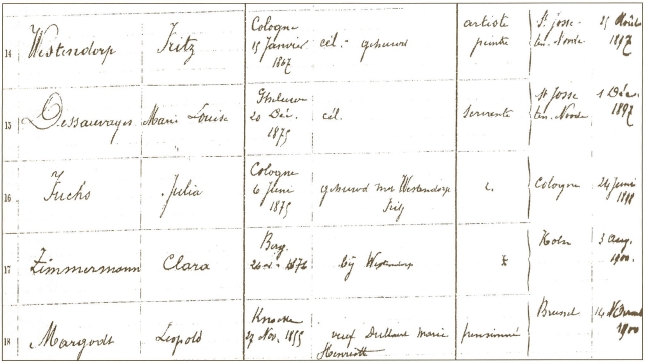 14 Westendorp Fritz Cologne 15 Janvier 1867 cél. - gehuwd artiste peintre St Josse ten Noode 15 Août 1897
15 Dessauvages Marie Louise 20 Déc. 1875 cél. servante St Josse ten Noode 1 Déc. 1897
16 Fuchs Julia Cologne 6 Juni 1875 gehuwd met Westendorp Fritz Cologne 24 Juni
17 Zimmermann Clara Berg. bij Westendorp Koln 3 Aug. 1900.
18 Margodt Leopold Knocke 29 Nov. 1855 veuf Dullaert Marie Henriette pensionné 1900